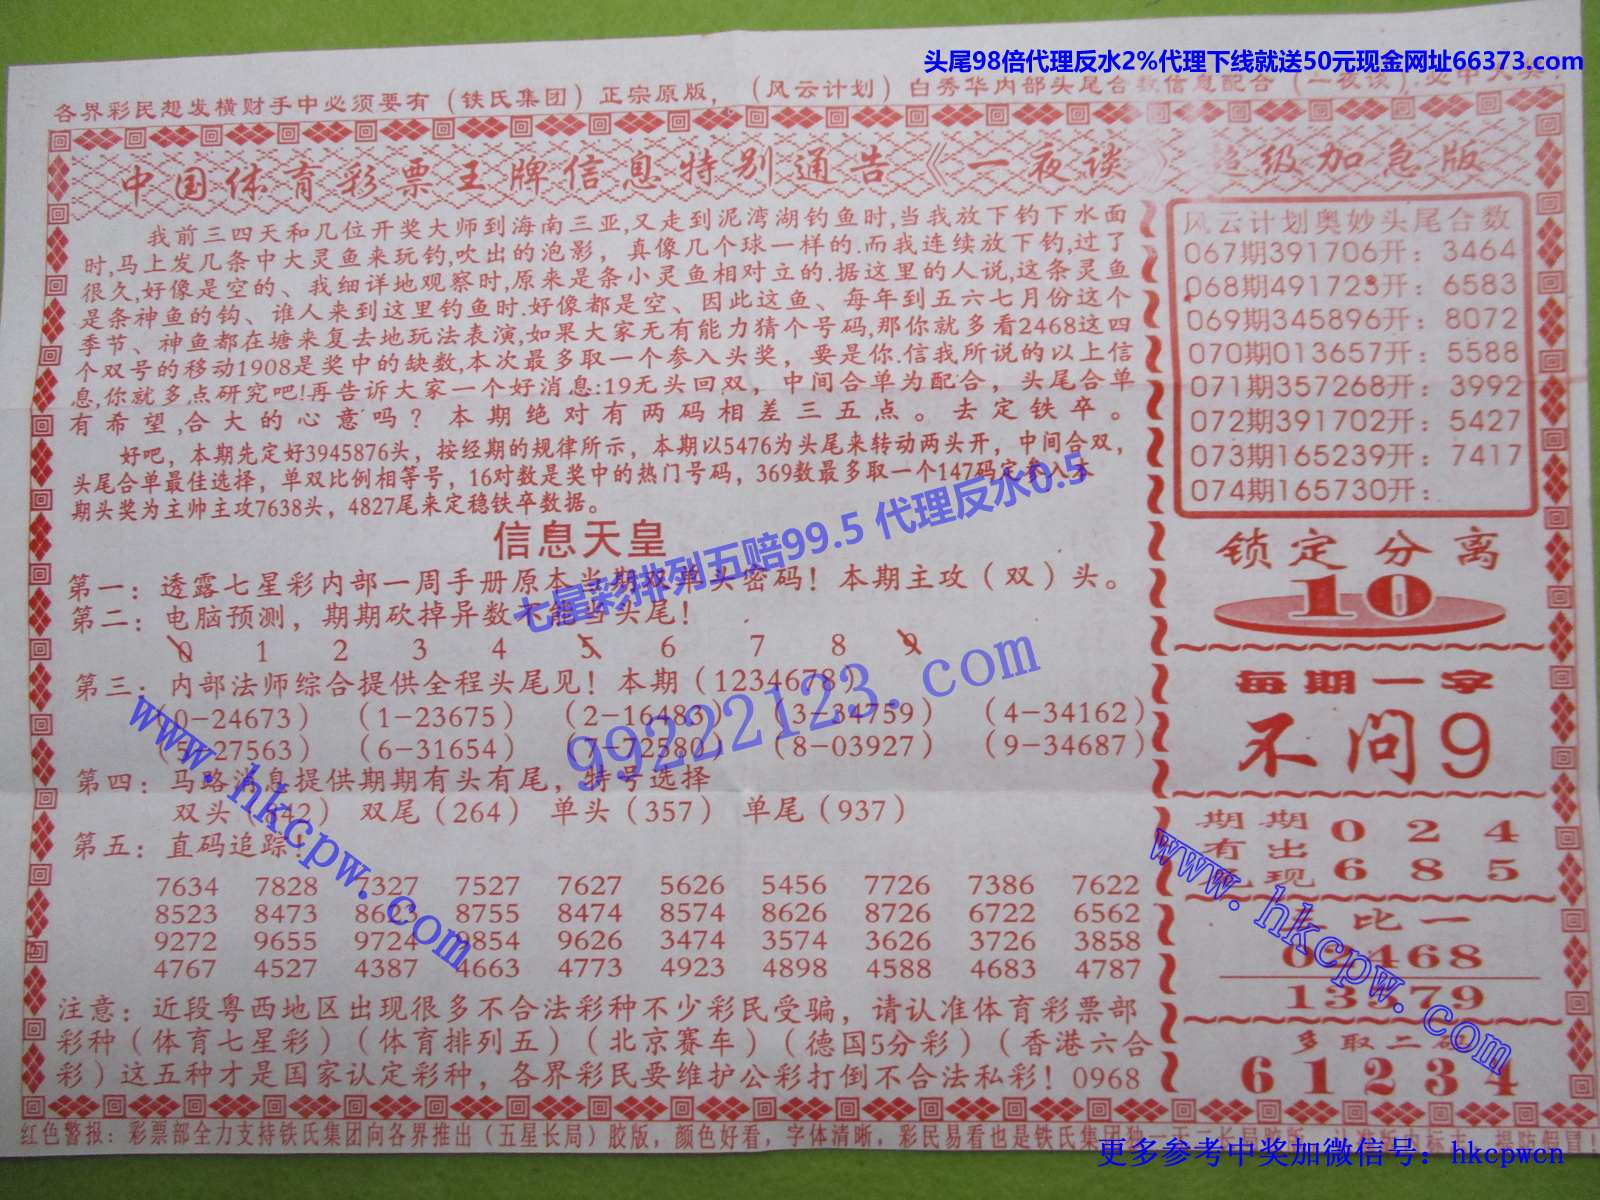 头尾98倍代理反水2%代理下线就送50元现金网址66373.com
各界彩民想发横财手中必须要有（铁氏集团）正宗原版，（风云计划）白秀华内部头尾合数信息配合（一夜谈）.必中大奖！
中国体育彩票王牌信息特别通告《一夜谈》超级加急版
我前三四天和几位开奖大师到海南三亚,又走到泥湾湖钓鱼时,当我放下钓下水面
时,马上发几条中大灵鱼来玩钓,吹出的泡影，真像几个球一样的.而我连续放下钓,过了
很久,好像是空的、我细详地观察时,原来是条小灵鱼相对立的.据这里的人说,这条灵鱼
是条神鱼的钩、谁人来到这里钓鱼时.好像都是空、因此这鱼、每年到五六七月份这个
季节、神鱼都在塘来复去地玩法表演,如果大家无有能力猜个号码,那你就多看2468这四
个双号的移动1908是奖中的缺数,本次最多取一个参入头奖，要是你.信我所说的以上信
息,你就多点研究吧!再告诉大家一个好消息:19无头回双，中间合单为配合，头尾合单
有希望,合大的心意吗？本期绝对有两码相差三五点。去定铁卒。
好吧，本期先定好3945876头，按经期的规律所示，本期以5476为头尾来转动两头开，中间合双，
头尾合单最佳选择，单双比例相等号，16对数是奖中的热门号码，369数最多取一个147码定参入本
期头奖为主帅主攻7638头，4827尾来定稳铁卒数据。
信息天皇
第一：透露七星彩内部一周手册原本当期双单头密码！本期主攻（双）头。
第二：电脑预测，期期砍掉异数不能当头尾！
0 1 2 3 4 5 6 7 8 9
第三：内部法师综合提供全程头尾见！本期（1234678）
（0-24673）（1-23675）（2-16483）（3-34759）（4-34162）
（5-27563）（6-31654）（7-72580）（8-03927）（9-34687）
第四：马路消息提供期期有头有尾，特号选择
双头（642）双尾（264）单头（357）单尾（937）
第五：直码追踪！
7634 7828 7327 7527 7627 5626 5456 7726 7386 7622
8523 8473 8623 8755 8474 8574 8626 8726 6722 6562
9272 9655 9724 9854 9626 3474 3574 3626 3726 3858
4767 4527 4387 4663 4773 4923 4898 4588 4683 4787
注意：近段粤西地区出现很多不合法彩种不少彩民受骗，请认准体育彩票部
彩种（体育七星彩）（体育排列五）（北京赛车）（德国5分彩）（香港六合
彩）这五种才是国家认定彩种，各界彩民要维护公彩打倒不合法私彩！0968
风云计划奥妙头尾合数
067期391706开：3464
068期491723开：6583
069期345896开：8072
070期013657开：5588
071期357268开：3992
072期391702开：5427
073期165239开：7417
074期165730开：
锁定分离
10
每期一字
不问9
期期 0 2 4
有出
现 6 8 5
比一
02468
13579
多取二码
6 1 2 3 4
红色警报：彩票部全力支持铁氏集团向各界推出（五星长局）胶版，颜色好看，字体清晰，彩民易看也是铁氏集团独
七星彩排列五赔99.5 代理反水0.5
99222123.com
www.hkcpw.com
www.hkcpw.com
更多参考中奖加微信号：hkcpwcn